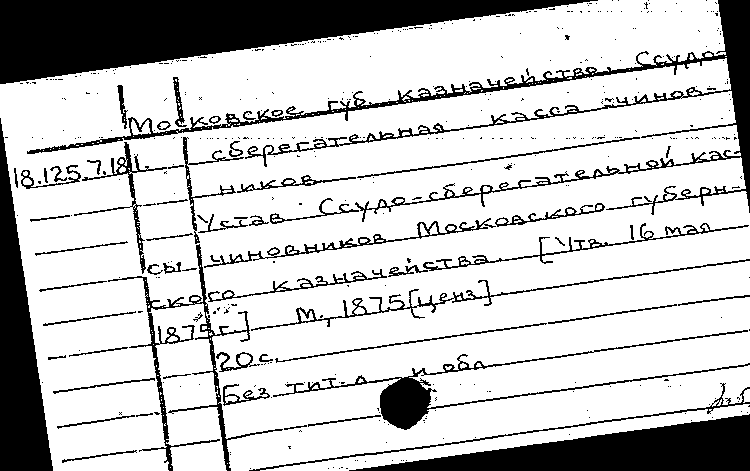 Московское губ. казначейство. Ссудо-
сберегательная касса чинов-
18.125.7.181.
ников.
Устав Ссудо-сберегательной кас-
сы чиновников Московского губерн-
ского казначейства. [Утв. 16 мая
1875г.] М., 1875 [ценз].
20 с.
Без тит. л. и обл.